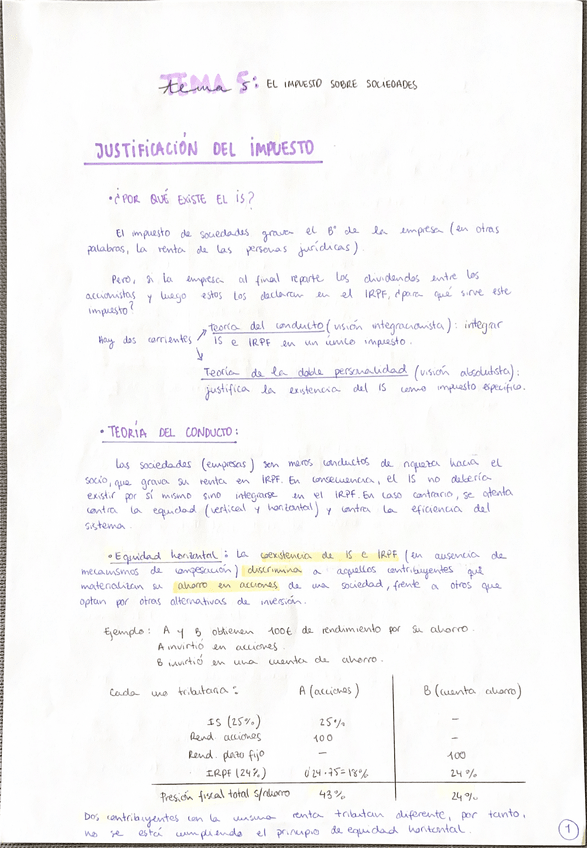 tema 5: EL IMPUESTO SOBRE SOCIEDADES
JUSTIFICACIÓN DEL IMPUESTO
• ¿POR QUÉ EXISTE EL IS?
El impuesto de sociedades grava el Bº de la empresa (en otras
palabras, la renta de las personas jurídicas).
Pero, si la empresa al final reparte los dividendos entre los
accionistas y luego estos los declaran en el IRPF, ¿para qué sirve este
impuesto?
Hay dos corrientes
Teoría del conducto (visión integracionista): integrar
IS e IRPF en un único impuesto.
Teoría de la doble personalidad (visión absolutista):
justifica la existencia del IS como impuesto específico.
• TEORÍA DEL CONDUCTO:
Las sociedades (empresas) son meros conductos de riqueza hacia el
socio, que grava su renta en IRPF. En consecuencia, el IS no debería
existir por sí mismo sino integrarse en el IRPF. En caso contrario, se atenta
contra la equidad (vertical y horizontal) y contra la eficiencia del
sistema.
• Equidad horizontal: La coexistencia de IS e IRPF (en ausencia de
mecanismos de compesación) discrimina a aquellos contribuyentes que
materializan su ahorro en acciones de una sociedad, frente a otros que
optan por otras alternativas de inversión.
Ejemplo: A y B obtienen 100€ de rendimiento por su ahorro.
A invirtió en acciones.
B invirtió en una cuenta de ahorro.
Cada uno tributaría: A (acciones) B (cuenta ahorro)
IS (25%) 25% -
Rend. acciones 100 -
Rend. plazo fijo - 100
IRPF (24%) 0'24·75=18% 24%
Presión fiscal total s/ahorro 43% 24%
Dos contribuyentes con la misma renta tributan diferente, por tanto,
no se está cumpliendo el principio de equidad horizontal.
1